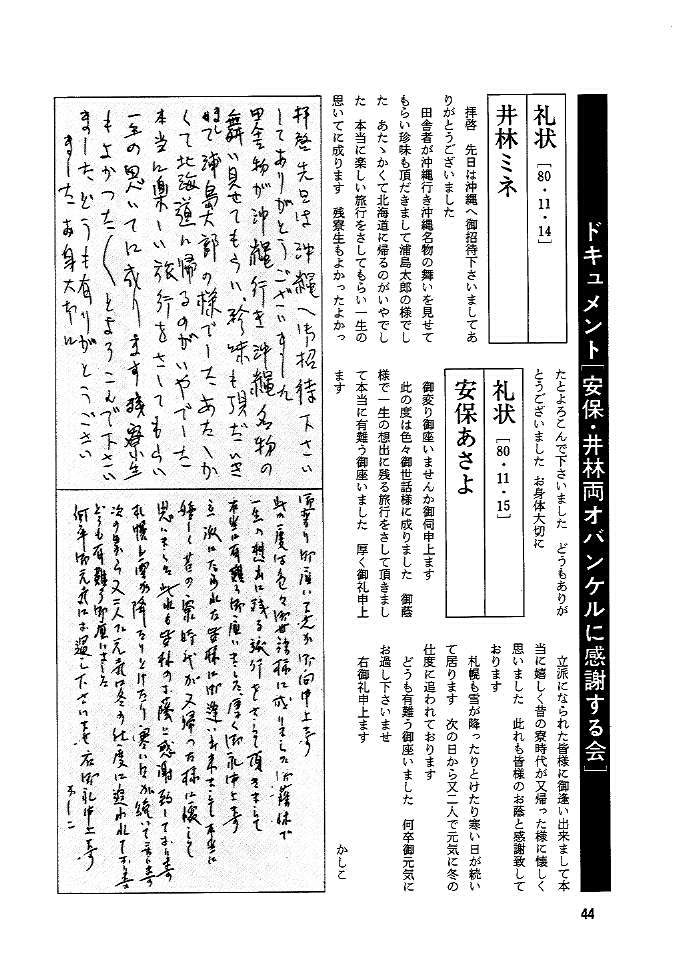 ドキュメント［安保・井林両オバンケルに感謝する会］
礼状［80・11・14］
井林ミネ
拝啓　先日は沖縄へ御招待下さいましてあ
りがとうございました
田舎者が沖縄行き沖縄名物の舞いを見せて
もらい珍味も頂だきまして浦島太郎の様でし
た　あたゝかくて北海道に帰るのがいやでし
た　本当に楽しい旅行をさしてもらい一生の
思いてに成ります　残寮生もよかったよかっ
たとよろこんで下さいました　どうもありが
とうございました　お身体大切に
礼状［80・11・15］
安保あさよ
御変り御座いませんか御伺申上ます
此の度は色々御世話様に成りました　御蔭
様で一生の想出に残る旅行をさして頂きまし
て本当に有難う御座いました　厚く御礼申上
ます
立派になられた皆様に御逢い出来まして本
当に嬉しく昔の寮時代が又帰った様に懐しく
思いました　此れも皆様のお蔭と感謝致して
おります
札幌も雪が降ったりとけたり寒い日が続い
て居ります　次の日から又二人で元気に冬の
仕度に追われております
どうも有難う御座いました　何卒御元気に
お過し下さいませ
右御礼申上ます
かしこ
拝啓先日は沖縄へ御招待下さい
ましてありがとうございました
田舎物が沖縄行き沖縄名物の
舞い見せてもらい、珍味も頂だいき
まして浦島太郎の様でしたあたゝか
くて北海道に帰るのがいやでした
本当に楽しい旅行をさしてもらい
一生の思いてに成ります残寮生
もよかったよかったとよろこんで下さい
ましたどうも有りがとうござい
ました お身大切に
御変り御座いませんか御伺申上ます
此の度は色々御世話様に成りました御蔭様で
一生の想出に残る旅行をさして頂きまして
本当に有難う御座いました厚く御礼申上ます
立派になられた皆様に御逢い出来まして本当に
嬉しく昔の寮時代が又帰った様に懐しく
思いました此れも皆様のお蔭と感謝致しております
札幌も雪が降たりとけたり寒い日が続いて居ります
次の日から又二人で元気に冬の仕度に追われております
どうも有難う御座いました
何卒御元気にお過し下さいませ右御礼申上ます
かしこ
44